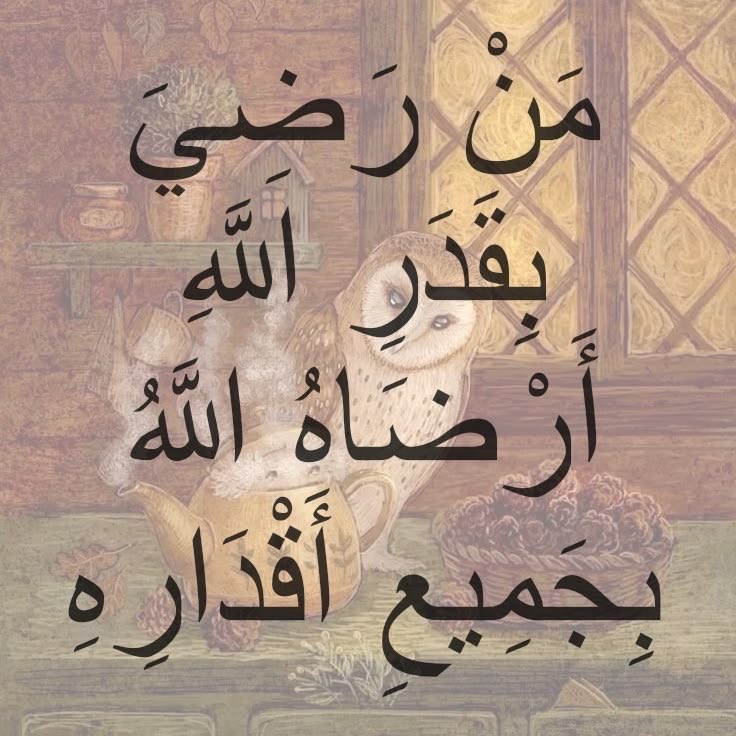 مَنْ رَضيَ
بِقَدَرِ اَللَّهِ
أَرْضَاهُ اللَّهُ
بِجَمِيعِ أَقْدَارِهِ